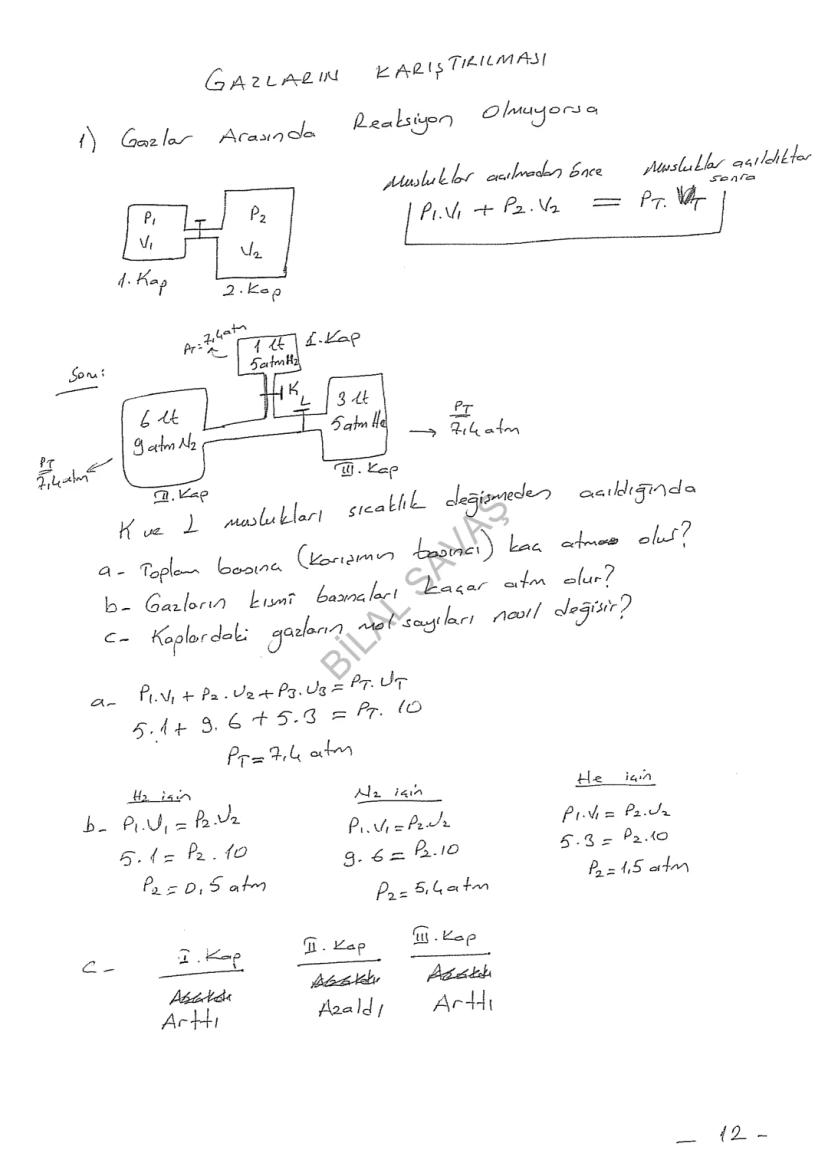 GAZLARIN KARIŞTIRILMASI
1) Gazlar Arasında Reaksiyon Olmuyorsa
Musluklar açılmadan önce Musluklar açıldıktan sonra
P1.V1 + P2.V2 = PT. VT
P1
V1
P2
V2
1. Kap
2. Kap
Soru:
PT=7,4atm
1 lt
5atmH2
I. Kap
K
L
6 lt
9 atm N2
3 lt
5atm He
PT
7,4 atm
PT
7,4 atm
II. Kap
III. Kap
K ve L muslukları sıcaklık değişmeden açıldığında
a- Toplam basınç (karışımın basıncı) kaç atm olur?
b- Gazların kısmi basınçları kaçar atm olur?
c- Kaplardaki gazların mol sayıları nasıl değişir?
BİLAL SAVAŞ
a- P1.V1 + P2.V2 + P3.V3 = PT.VT
5.1 + 9.6 + 5.3 = PT. 10
PT = 7,4 atm
H2 için N2 için He için
b- P1.V1 = P2.V2 P1.V1 = P2.V2 P1.V1 = P2.V2
5.1 = P2. 10 9.6 = P2.10 5.3 = P2.10
P2 = 0,5 atm P2 = 5,4 atm P2 = 1,5 atm
c- I. Kap II. Kap III. Kap
Arttı Azaldı Arttı
- 12 -